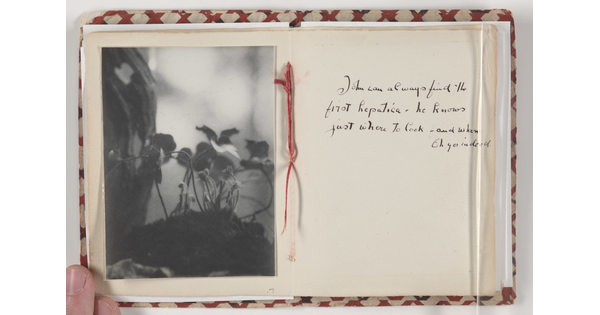 John can always find the
first hepatica - he knows
just where to look - and when
Oh yes indeed